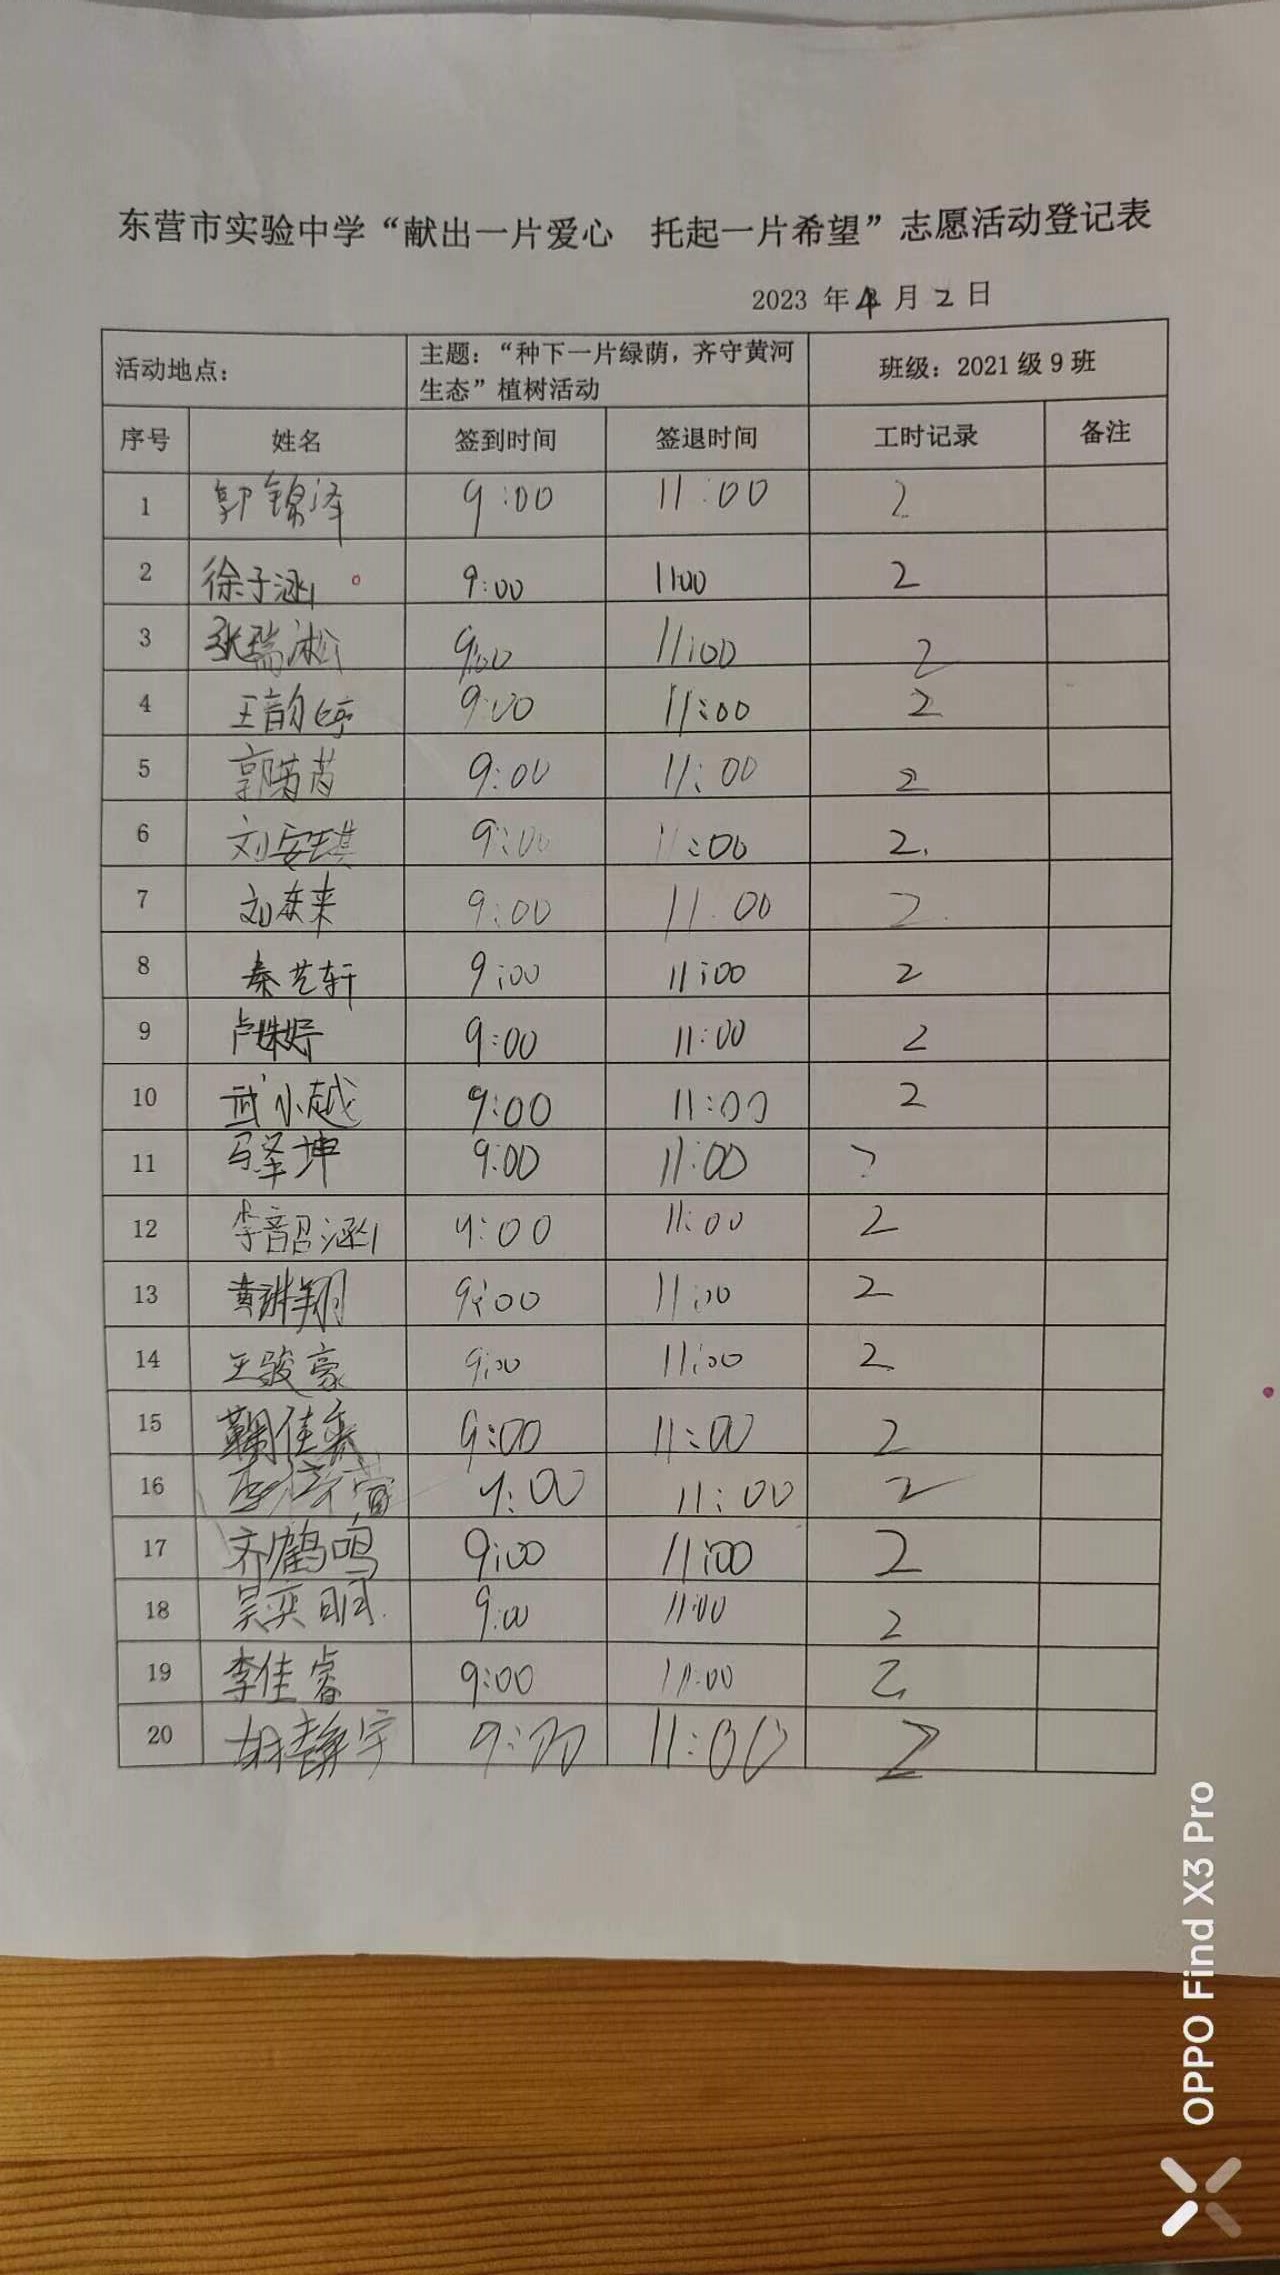 东营市实验中学“献出一片爱心 托起一片希望”志愿活动登记表
2023 年 4 月 2 日
活动地点： 主题：“种下一片绿荫，齐守黄河生态”植树活动 班级：2021 级 9 班
序号 姓名 签到时间 签退时间 工时记录 备注
1 郭锦泽 9:00 11:00 2
2 徐子涵 9:00 11:00 2
3 张瑞淞 9:00 11:00 2
4 王韵婷 9:00 11:00 2
5 郭芮茜 9:00 11:00 2
6 刘安琪 9:00 11:00 2.
7 刘东来 9:00 11:00 2.
8 秦艺轩 9:00 11:00 2
9 卢姝妤 9:00 11:00 2
10 武小越 9:00 11:00 2
11 马泽坤 9:00 11:00 2
12 李韶涵 9:00 11:00 2
13 黄翔 9:00 11:00 2
14 王骏豪 9:00 11:00 2
15 鞠佳 9:00 11:00 2
16 9:00 11:00 2
17 齐鹤鸣 9:00 11:00 2
18 吴奕明 9:00 11:00 2
19 李佳睿 9:00 11:00 2
20 胡静宇 9:00 11:00 2
OPPO Find X3 Pro